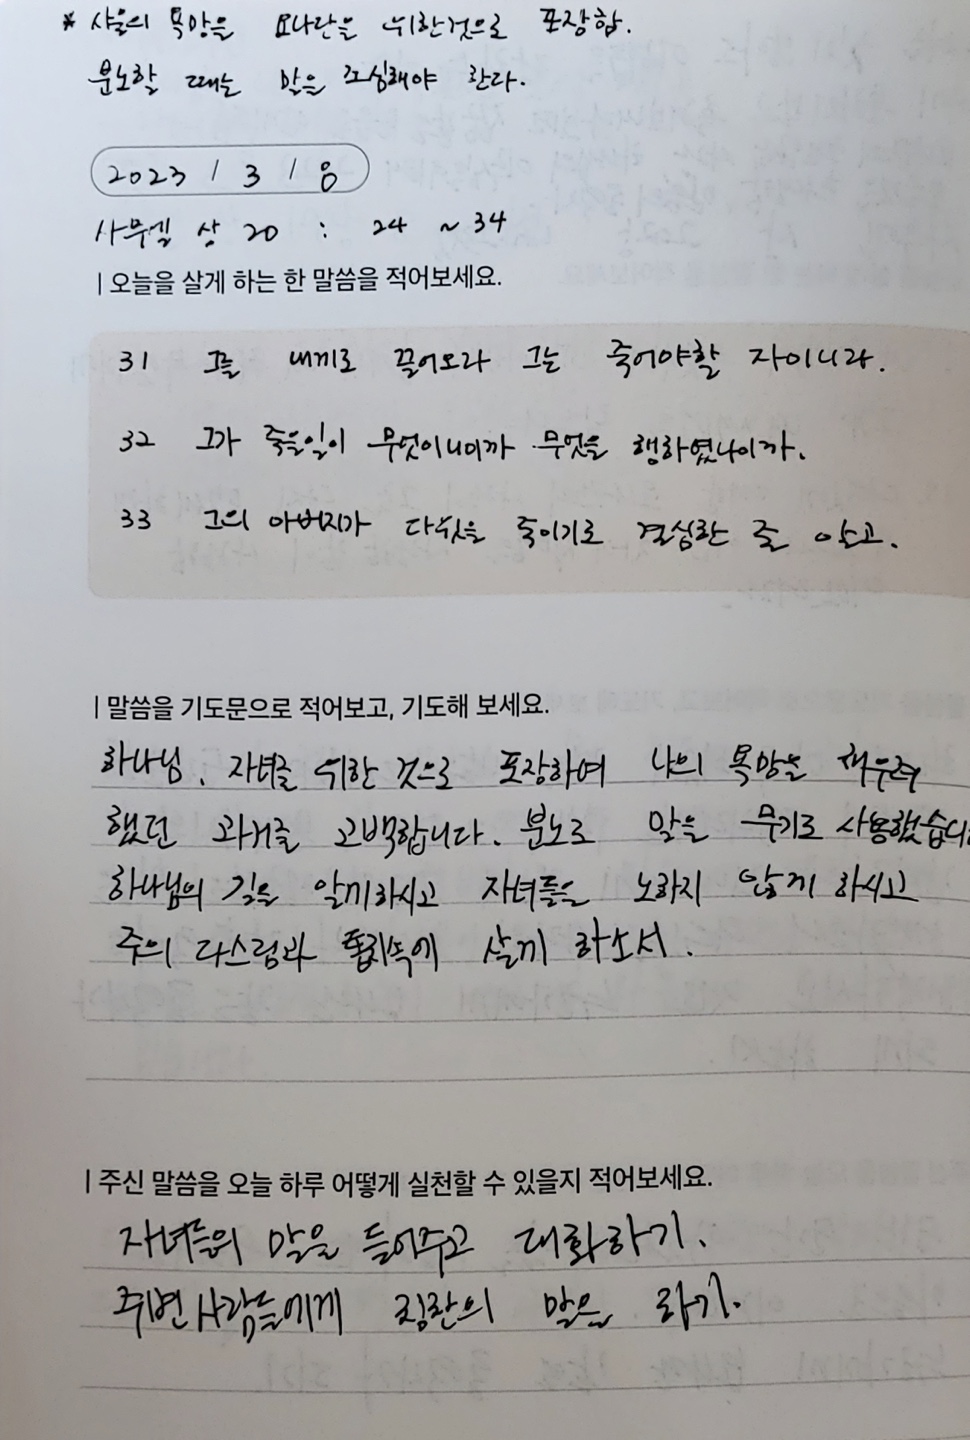 * 사울의 욕망을 요나단을 위한것으로 포장함.
분노할 때는 말을 조심해야 한다.
2023 / 3 / 8
사무엘 상 20 : 24 ~ 34
| 오늘을 살게 하는 한 말씀을 적어보세요.
31 그를 내게로 끌어오라 그는 죽어야할 자이니라.
32 그가 죽을일이 무엇이니이까 무엇을 행하였나이까.
33 그의 아버지가 다윗을 죽이기로 결심한 줄 알고.
| 말씀을 기도문으로 적어보고, 기도해 보세요.
하나님. 자녀를 위한 것으로 포장하여 나의 욕망을 채우려
했던 과거를 고백합니다. 분노로 말을 무기로 사용했습니다
하나님의 길을 알게하시고 자녀들을 노하지 않게 하시고
주의 다스림과 살게 하소서.
| 주신 말씀을 오늘 하루 어떻게 실천할 수 있을지 적어보세요.
자녀들의 말을 들어주고 대화하기.
주변사람들에게 칭찬의 말을 하기.